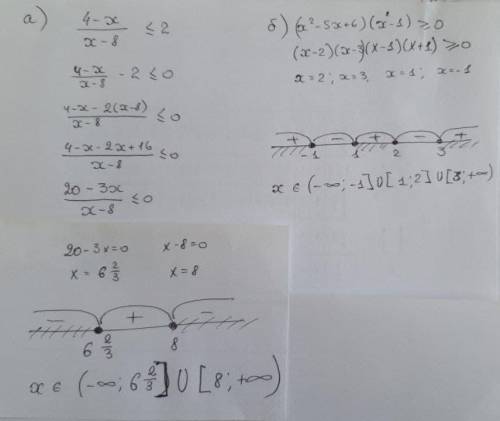 а) (4-x)/(x-8) ≤ 2
(4-x)/(x-8) - 2 ≤ 0
(4-x-2(x-8))/(x-8) ≤ 0
(4-x-2x+16)/(x-8) ≤ 0
(20-3x)/(x-8) ≤ 0
20-3x=0 x-8=0
x = 6 2/3 x=8
- + -
6 2/3 8
x ∈ (-∞; 6 2/3] ∪ [8; +∞)
б) (x²-5x+6)(x²-1) ≥ 0
(x-2)(x-3)(x-1)(x+1) ≥ 0
x=2; x=3, x=1; x=-1
+ - + - +
-1 1 2 3
x ∈ (-∞; -1] ∪ [1; 2] ∪ [3; +∞)